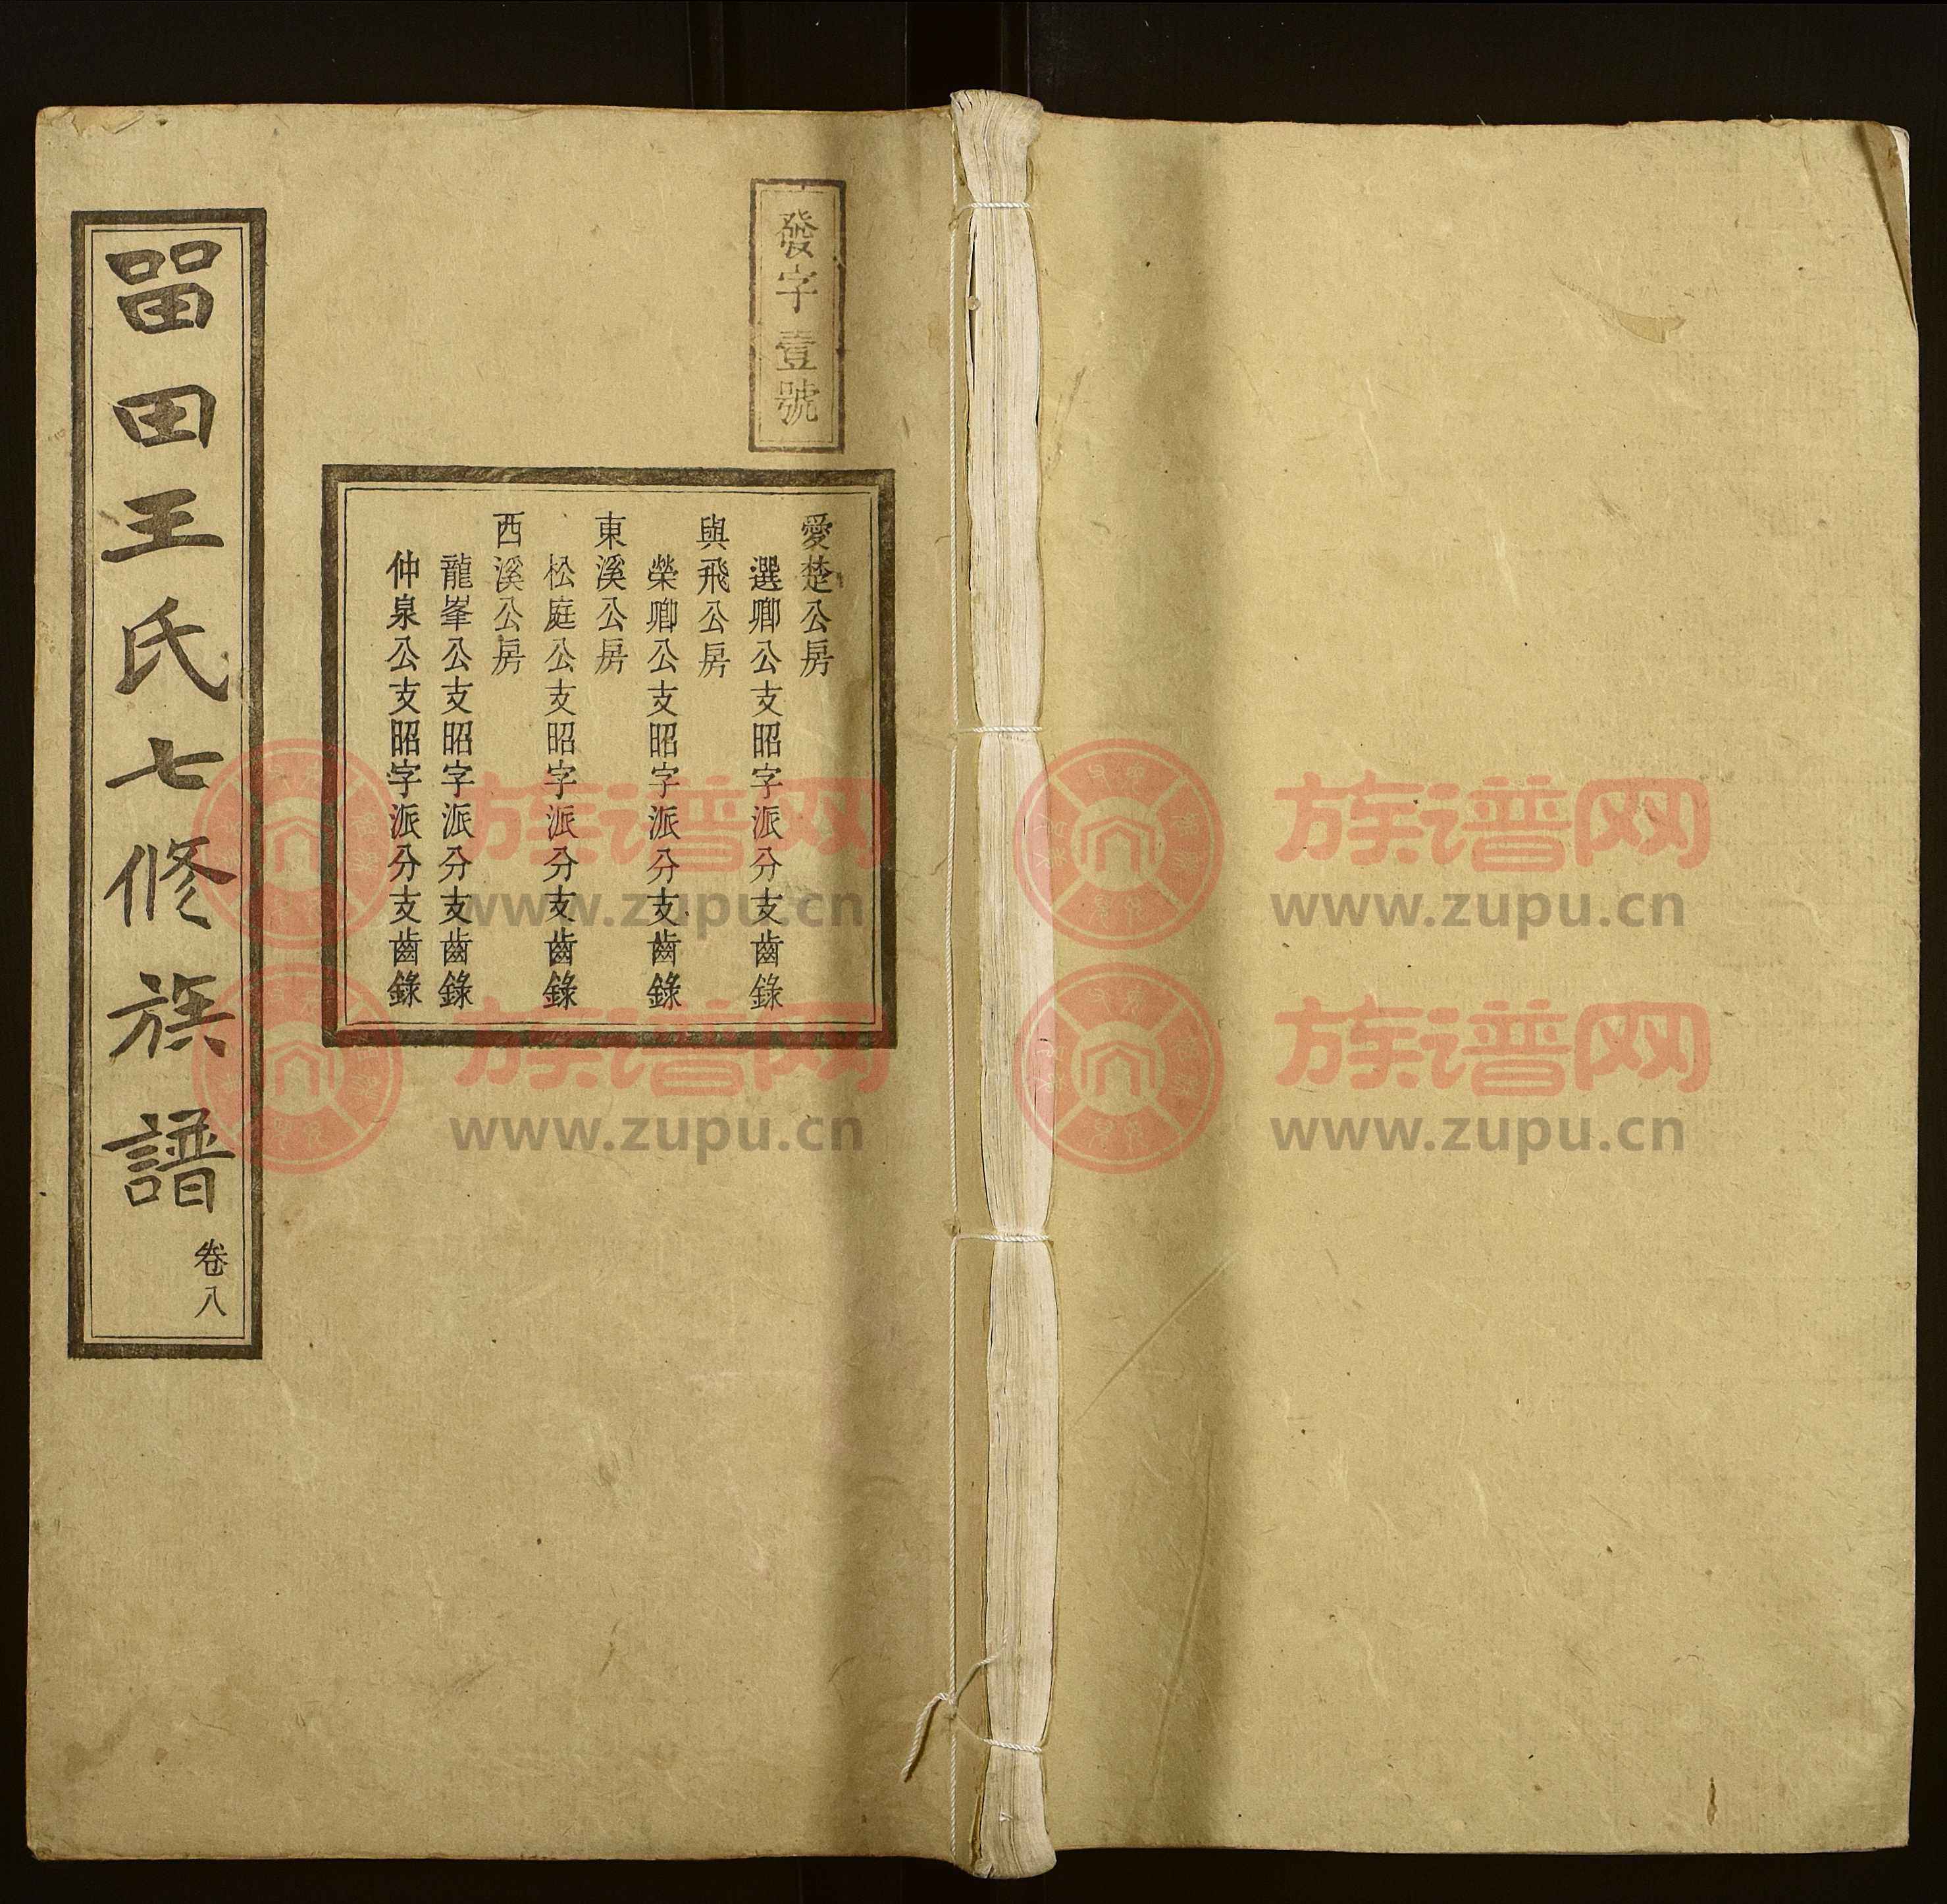 發字壹號
愛楚公房
選卿公支昭字派分支齒錄
與飛公房
榮卿公支昭字派分支齒錄
東溪公房
松庭公支昭字派分支齒錄
西溪公房
龍峯公支昭字派分支齒錄
仲泉公支昭字派分支齒錄
畱田王氏七修族譜
卷八
族谱网
www.zupu.cn
族谱网
www.zupu.cn
族谱网
www.zupu.cn
族谱网
www.zupu.cn